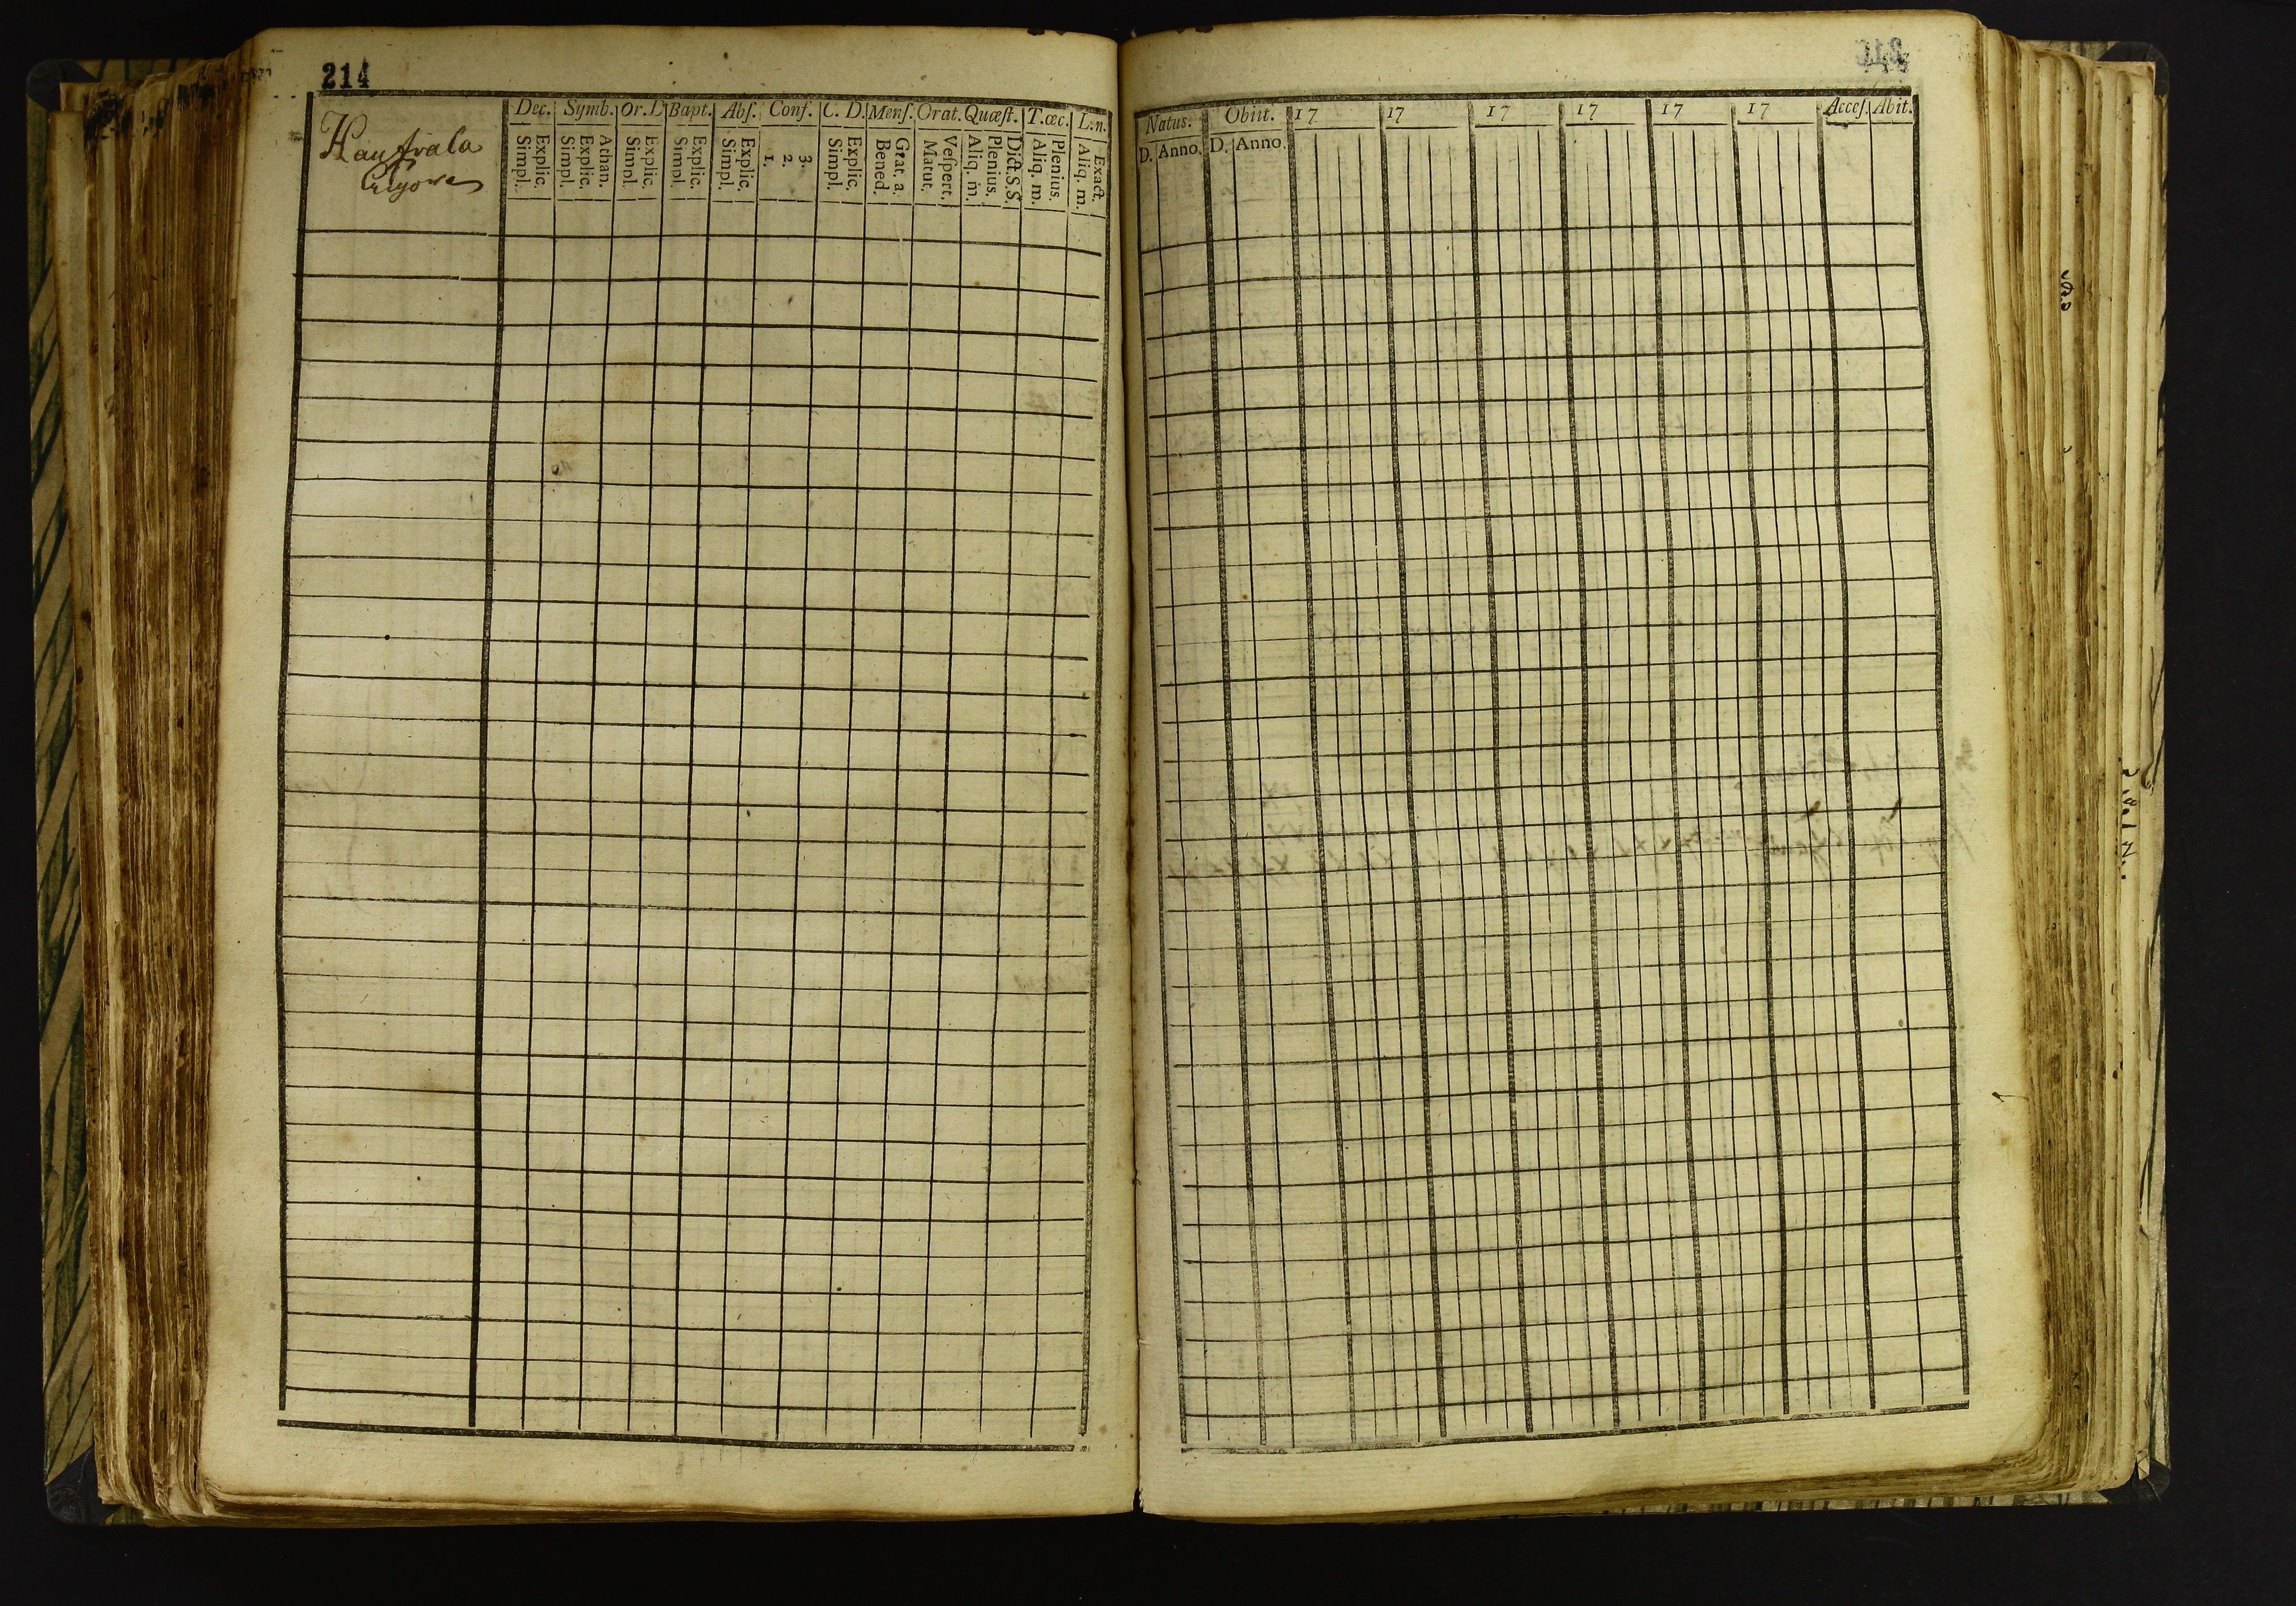 214
Dec. Symb. Or. D Bapt. Abſ. Conf. C. D. Menſ. Orat. Quæſt. T. œc. L. n.
Explic. Simpl.
Athan. Explic. Simpl.
Explic. Simpl.
Explic. Simpl.
Explic. Simpl.
3. 2. 1.
Explic. Simpl.
Grat. a. Bened.
Veſpert. Matut.
Dict. S. S. Plenius. Aliq. m.
Plenius. Aliq. m.
Exact. Aliq. m.
Natus. Obiit. 17 17 17 17 17 17 Acceſ. Abit.
D. Anno. D. Anno.